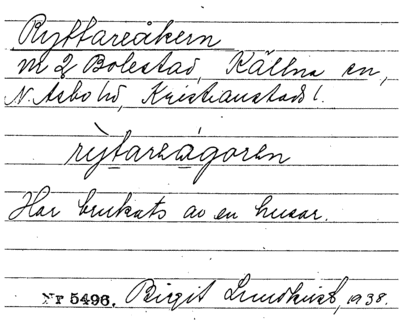 Ryttareåkern
m 2 Bolestad, Källna sn,
N. Åsbo hd, Kristianstads l.
rỳtareágorɛn
Har brukats av en husar.
Nr 5496. Birgit Lundkvist, 1938.